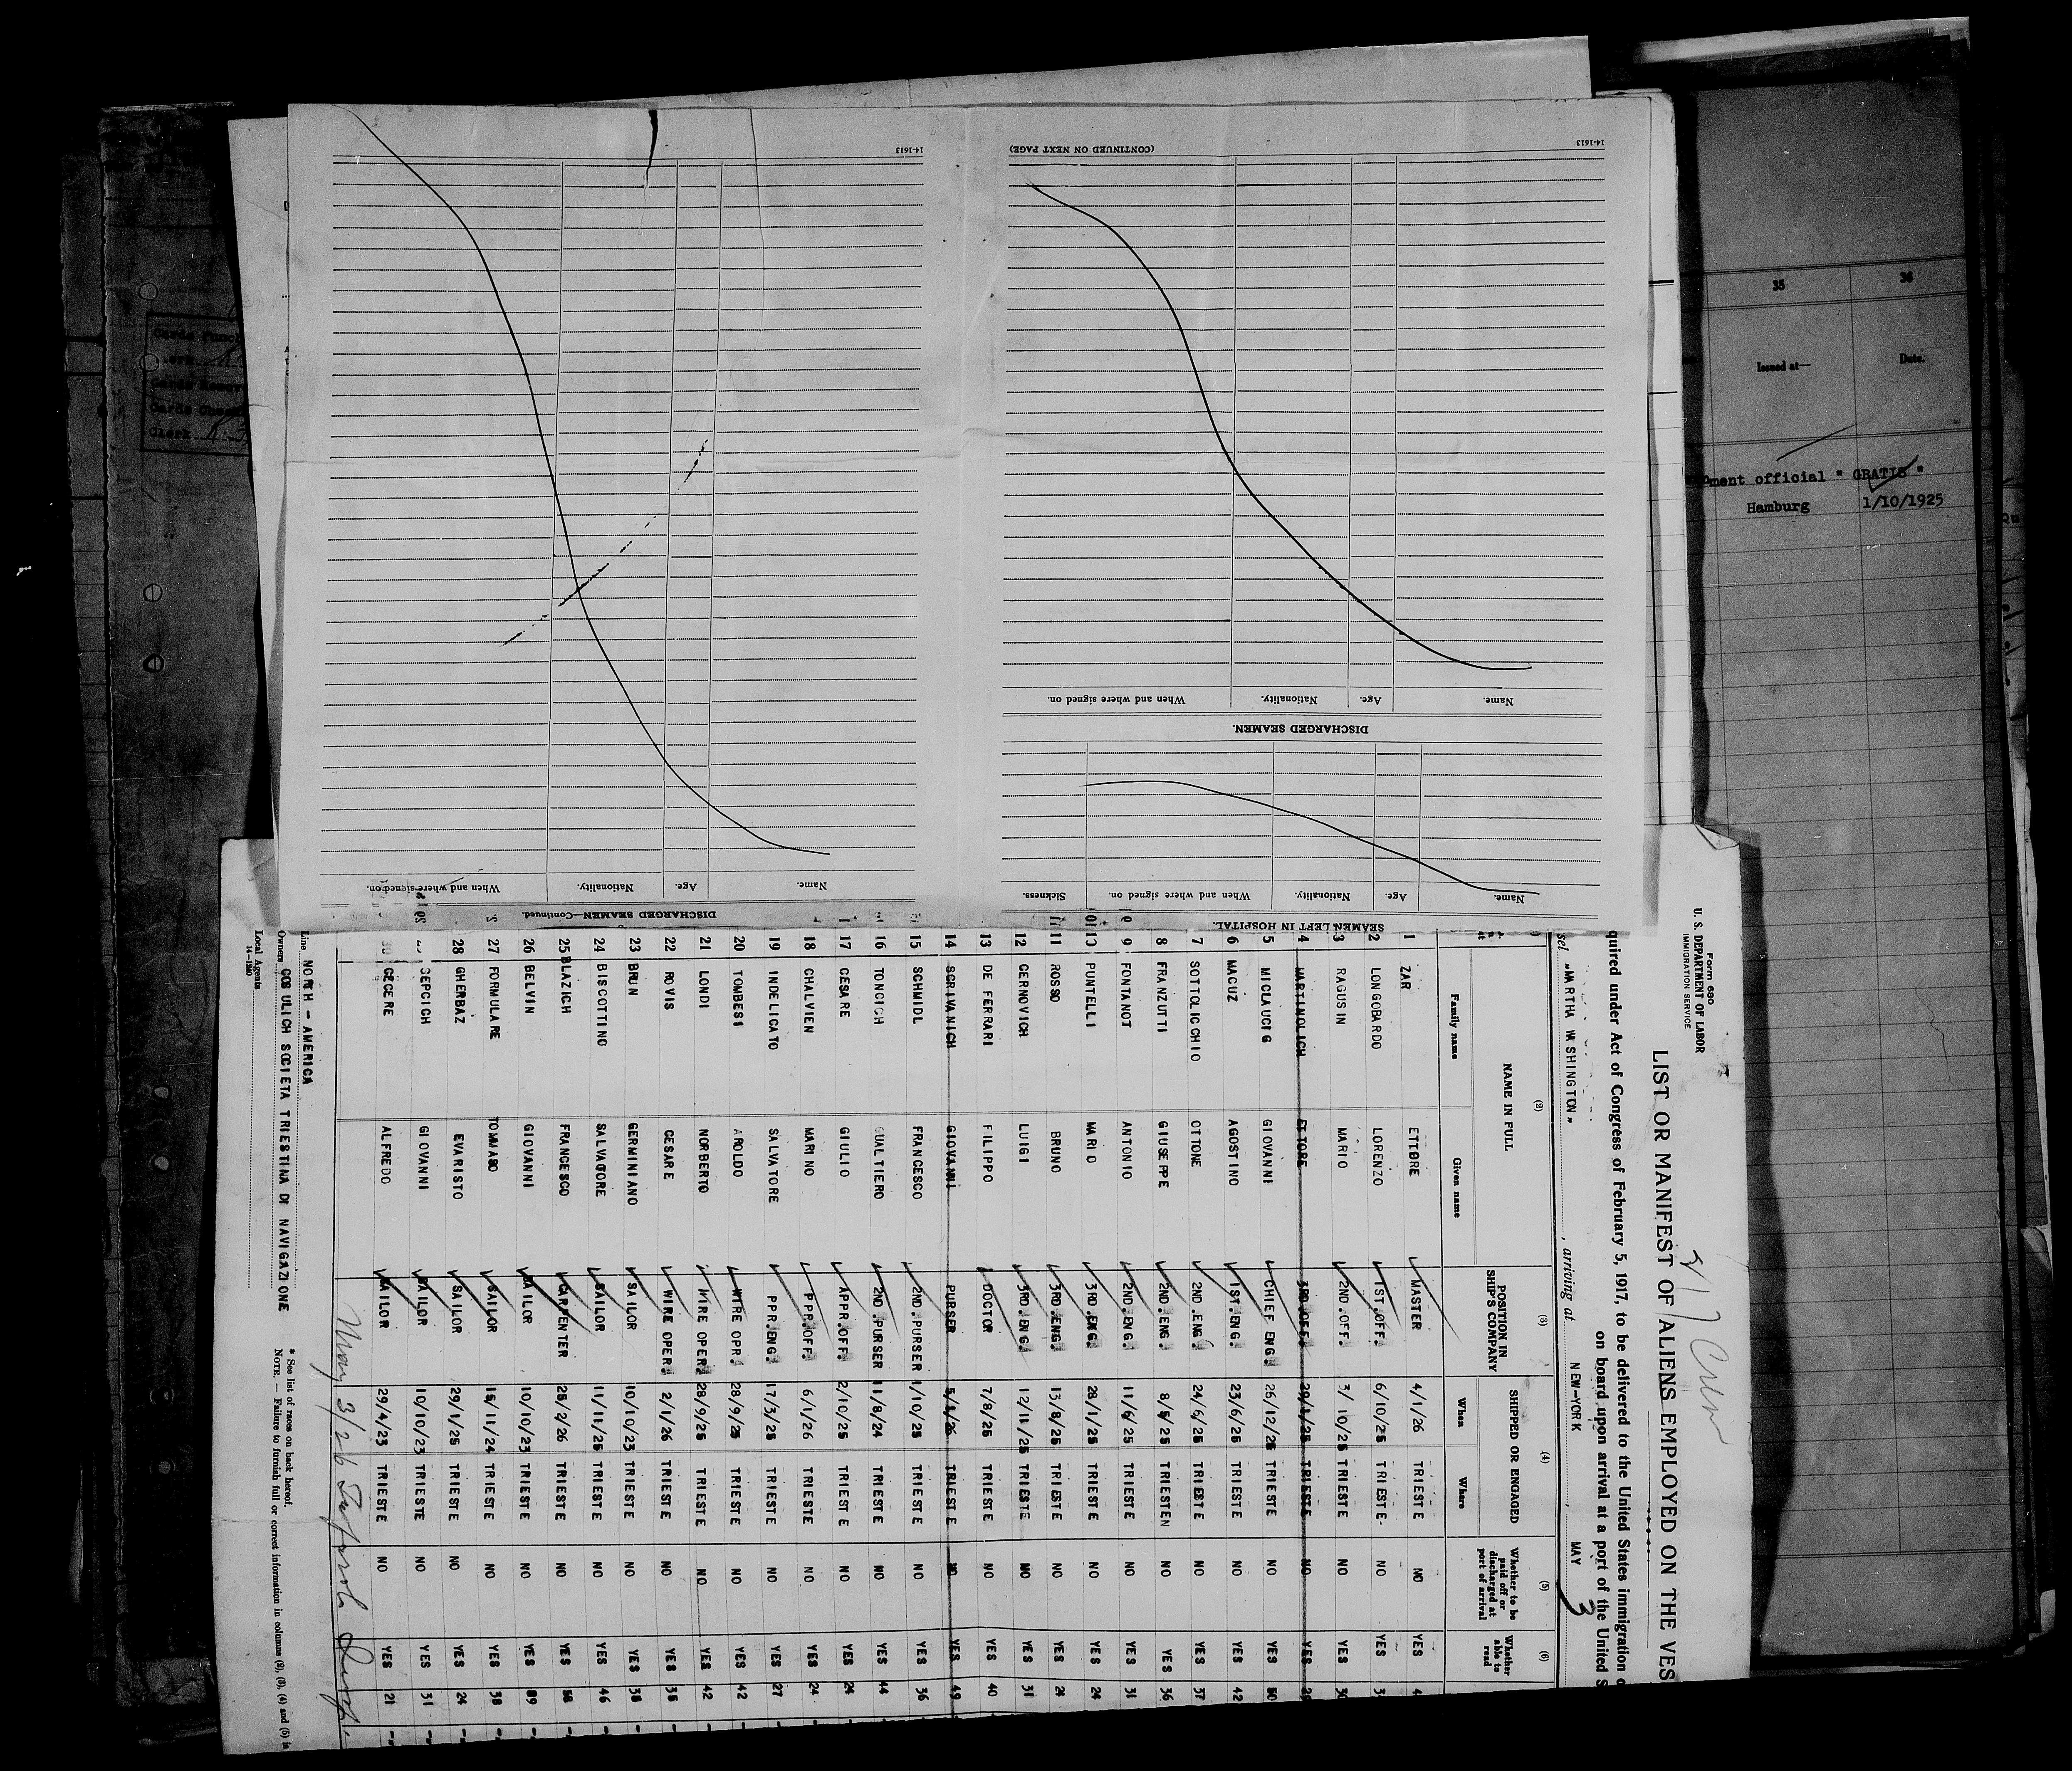 Form 680
U. S. DEPARTMENT OF LABOR
IMMIGRATION SERVICE
LIST OR MANIFEST OF ALIENS EMPLOYED ON THE VES
quired under Act of Congress of February 5, 1917, to be delivered to the United States immigration
on board upon arrival at a port of the United S
sel "MARTHA WASHINGTON" , arriving at NEW-YORK , MAY 3
(2) (3) (4) (5) (6)
NAME IN FULL POSITION IN SHIP'S COMPANY SHIPPED OR ENGAGED Whether to be paid off or discharged at port of arrival Whether able to read
Family name Given name When Where
1 ZAR ETTORE MASTER 4/1/26 TRIESTE NO YES
2 LONGOBARDO LORENZO 1ST.OFF. 6/10/25 TRIESTE- NO YES
3 RAGUSIN MARIO 2ND.OFF. 3/10/25 TRIESTE NO YES
4 MARTINOLICH ETTORE 3RD.OFF. TRIESTE NO YES
5 MICLAUCIG GIOVANNI CHIEF ENG. 26/12/25 TRIESTE NO YES 50
6 MACUZ AGOSTINO 1ST.ENG. 23/6/25 TRIESTE NO YES 42
7 SOTTOLICCHIO OTTONE 2ND.ENG. 24/6/25 TRIESTE NO YES 37
8 FRANZUTTI GIUSEPPE 2ND.ENG. 8/5/25 TRIESTEN NO YES 36
9 FONTANOT ANTONIO 2ND.ENG. 11/6/25 TRIESTE NO YES 31
10 PUNTELLI MARIO 3RD.ENG. 28/1/25 TRIESTE NO YES 24
11 ROSSO BRUNO 3RD.ENG. 13/8/25 TRIESTE NO YES 24
12 CERNOVICH LUIGI 3RD.ENG. 12/11/25 TRIESTE NO YES 31
13 DE FERRARI FILIPPO DOCTOR 7/8/25 TRIESTE NO YES 40
14 SCRIVANICH GIOVANNI PURSER 5/1/26 TRIESTE NO YES 49
15 SCHMIDL FRANCESCO 2ND.PURSER 1/10/25 TRIESTE NO YES 36
16 TONCICH GUALTIERO 2ND.PURSER 11/8/24 TRIESTE NO YES 44
17 CESARE GIULIO APPR.OFF. 2/10/25 TRIESTE NO YES 24
18 CHALVIEN MARINO PPR.OFF. 6/1/26 TRIESTE NO YES 24
19 INDELICATO SALVATORE PPR.ENG. 17/3/25 TRIESTE NO YES 27
20 TOMBESI AROLDO WIRE OPR. 28/9/25 TRIESTE NO YES 42
21 LONDI NORBERTO WIRE OPER. 28/9/25 TRIESTE NO YES 42
22 ROVIS CESARE WIRE OPER. 2/1/26 TRIESTE NO YES 35
23 BRUN GERMINIANO SAILOR 10/10/23 TRIESTE NO YES 38
24 BISCOTTINO SALVATORE SAILOR 11/11/25 TRIESTE NO YES 46
25 BLAZICH FRANCESCO CARPENTER 25/2/26 TRIESTE NO YES
26 BELVIN GIOVANNI SAILOR 10/10/23 TRIESTE NO YES
27 FORMULARE TOMMASO SAILOR 15/11/24 TRIESTE NO YES 38
28 GHERBAZ EVARISTO SAILOR 29/1/25 TRIESTE NO YES 24
CEPCICH GIOVANNI SAILOR 10/10/23 TRIESTE NO YES 31
30 CECERE ALFREDO SAILOR 29/4/23 TRIESTE NO YES 21
May 3/26
Line NORTH - AMERICA
Owners COSULICH SOCIETA TRIESTINA DI NAVIGAZIONE
Local Agents
14-1240
* See list of races on back hereof.
NOTE. — Failure to furnish full or correct information in columns (2), (3), (4) and (5) is
SEAMEN LEFT IN HOSPITAL.
Name. Age. Nationality. When and where signed on. Sickness.
DISCHARGED SEAMEN.
Name. Age. Nationality. When and where signed on.
(CONTINUED ON NEXT PAGE)
14-1613
DISCHARGED SEAMEN—Continued.
Name. Age. Nationality. When and where signed on.
14-1613
35 36
Issued at— Date.
ment official " GRATIS "
Hamburg 1/10/1925
Cards Punch
Clerk
Cards
Cards
Clerk